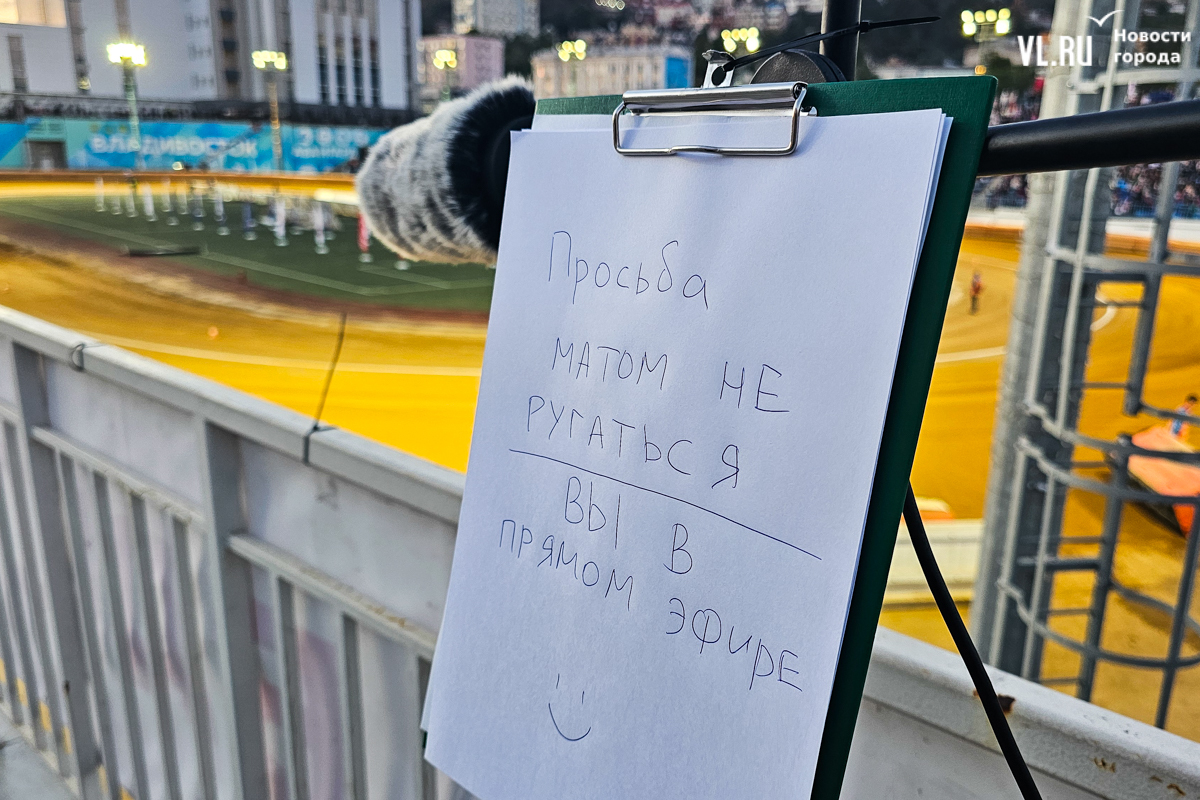 VL.RU
Новости
города
ВЛАДИВОСТОК
Просьба
МАТОМ НЕ
РУГАТЬСЯ
ВЫ В
ПРЯМОМ
ЭФИРЕ